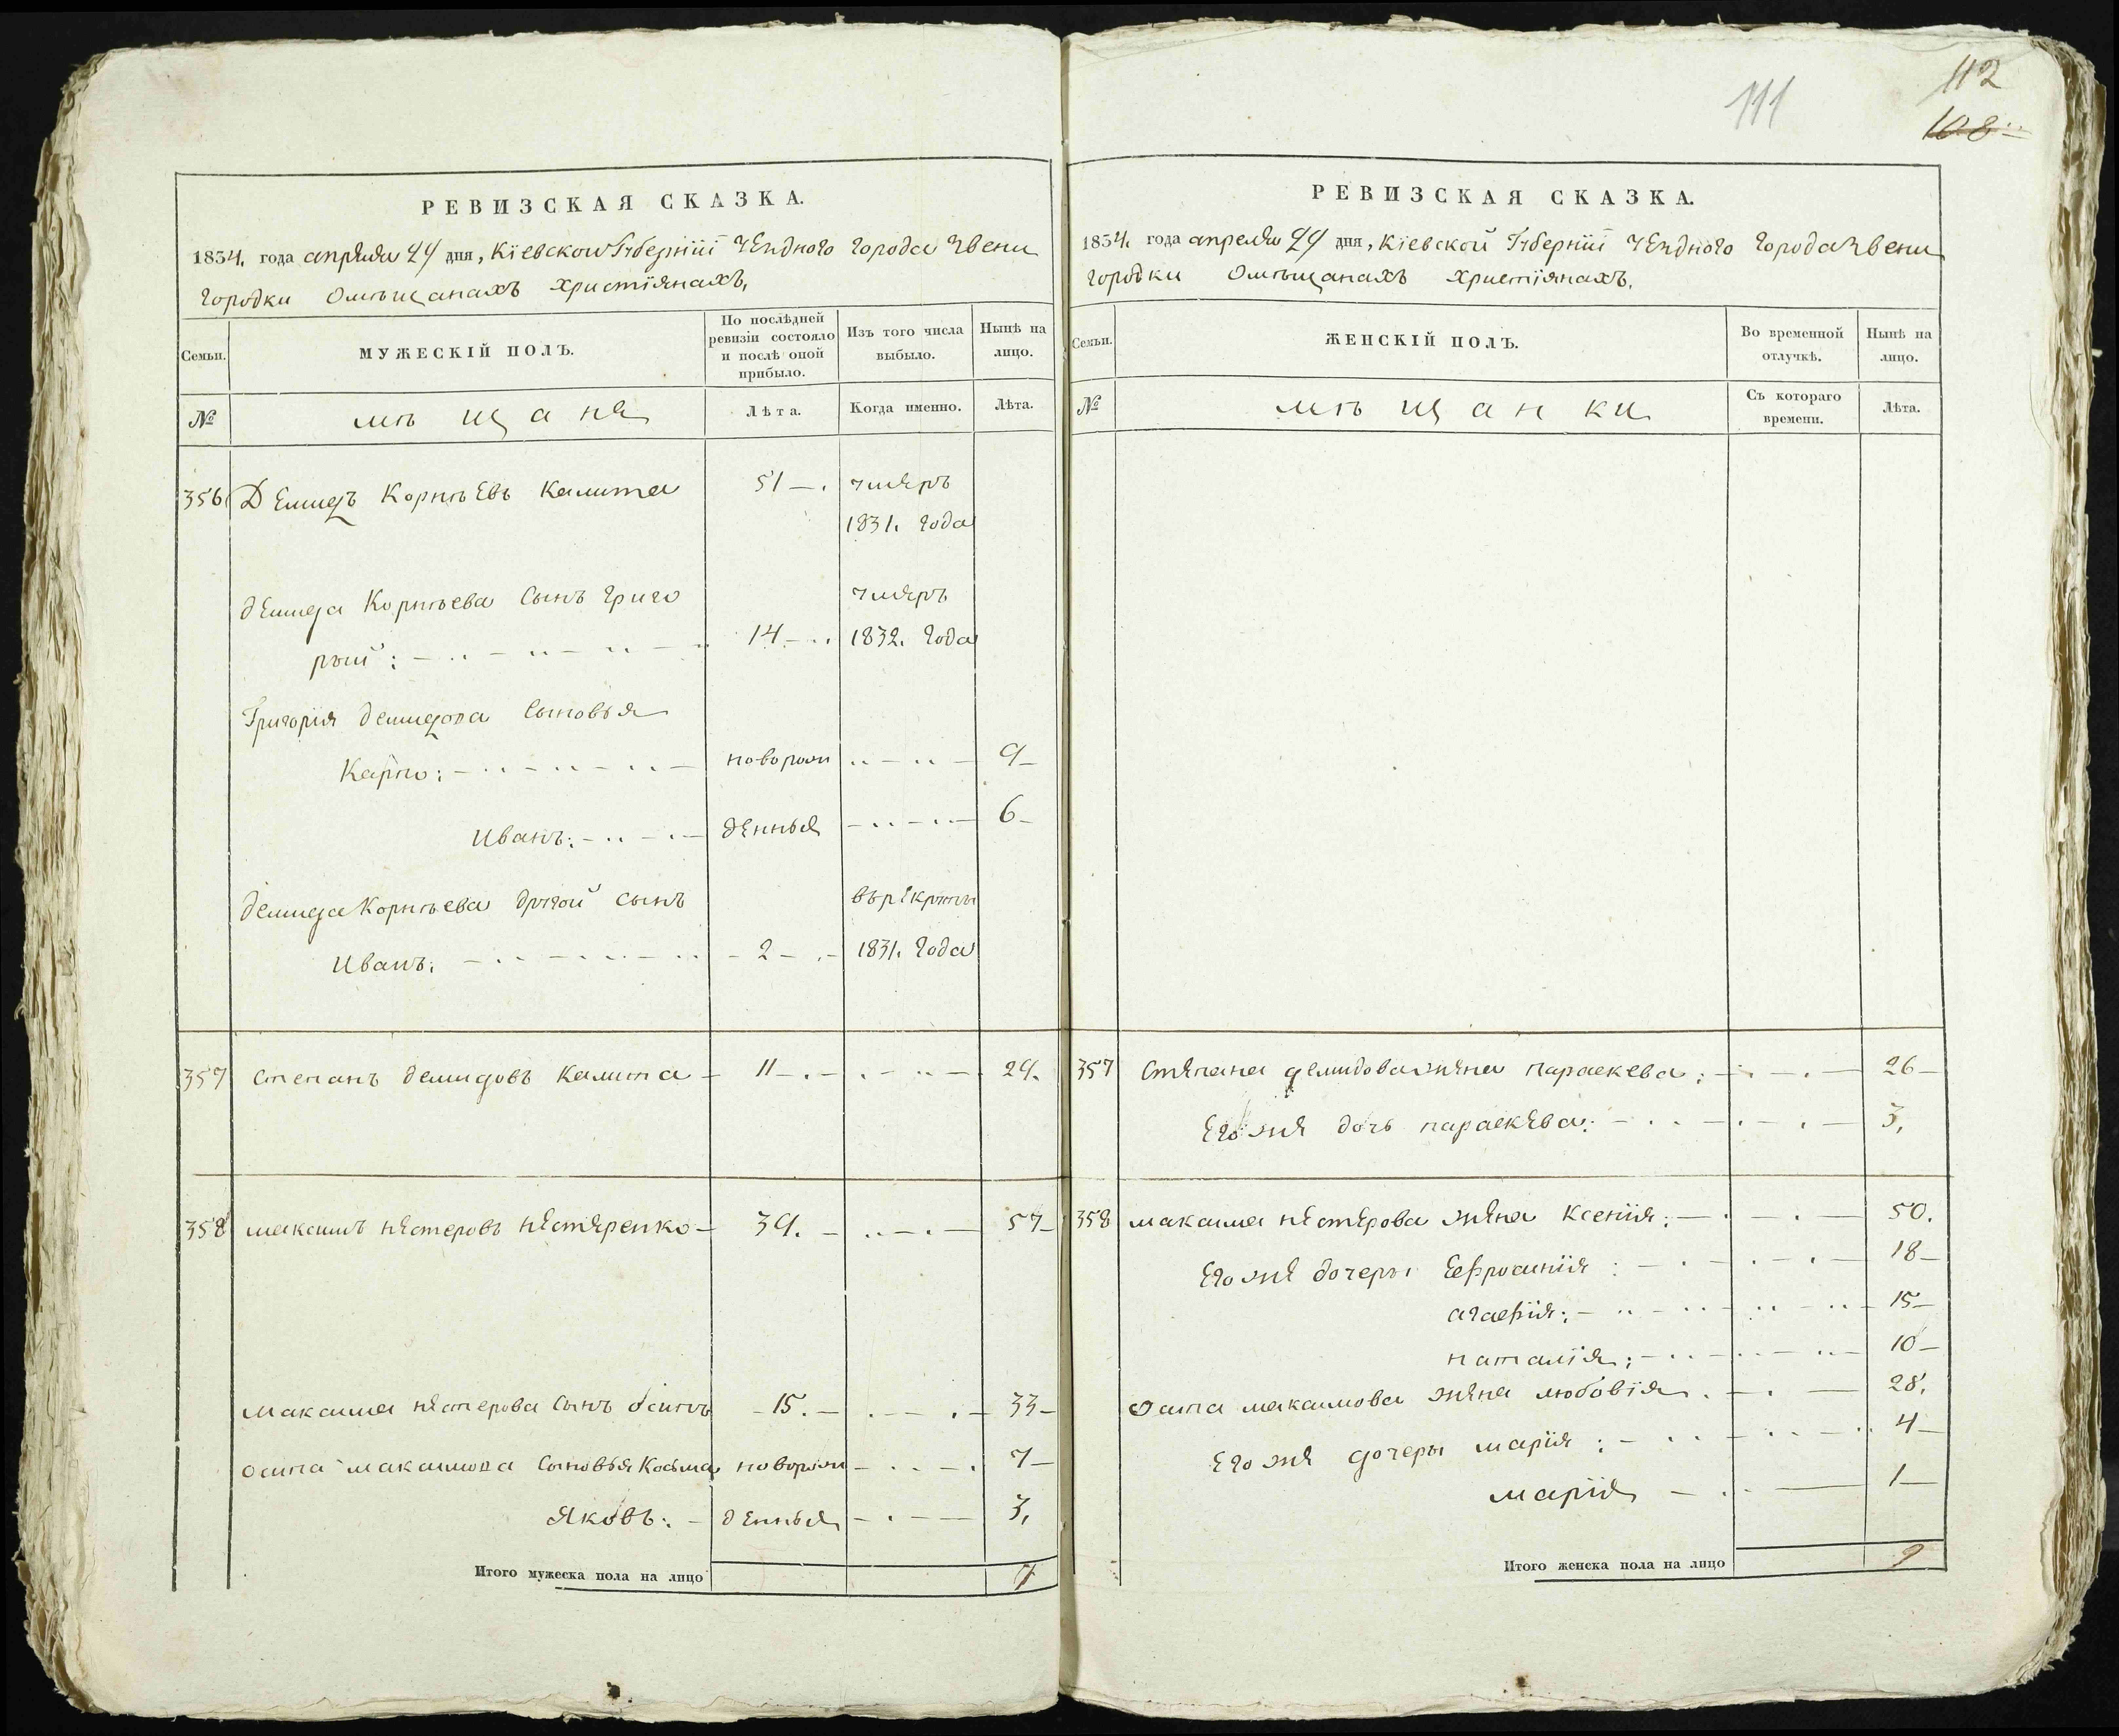 111
112
108
РЕВИЗСКАЯ СКАЗКА.
1834. года апреля 24 дня, Кіевской Губерніи уезднаго города Звени
городки Омѣщанахъ христіянахъ,
Семьи.
МУЖЕСКІЙ ПОЛЪ.
По послѣдней ревизіи состояло и послѣ оной прибыло.
Изъ того числа выбыло.
Нынѣ на лицо.
№
мѣ ща не
Лѣта.
Когда именно.
Лѣта.
356 Демидъ Корнѣевъ Калита 51 умеръ
1831. года
демида Корнѣева сынъ Григо умеръ
рый: 14 1832. года
Григорія демидова сыновья
Карпо: новорож 9
Иванъ: денные 6
демида Корнѣева другой сынъ врекруты
Иванъ: 2 1831. года
357 степанъ демидовъ Калита 11 29.
358 максимъ нестеровъ нестеренко 39. 57
максима нестерова сынъ осипъ 15. 33
осипа максимова сыновья Косьма новорож 7
Яковъ: денные 3,
Итого мужеска пола на лицо 7
РЕВИЗСКАЯ СКАЗКА.
1834. года апреля 24 дня, Кіевской Губерніи уезднаго города Звени
городки Омѣщанахъ христіянахъ.
Семьи.
ЖЕНСКІЙ ПОЛЪ.
Во временной отлучкѣ.
Нынѣ на лицо.
№
мѣ щан ки
Съ котораго времени.
Лѣта.
357 степана демидова жена параскева: 26
Его же дочь параскева: 3,
358 максима нестерова жена Ксенія: 50.
Его же дочеры Еефросинія: 18
агафія: 15
наталія: 10
осипа максимова жена любовія 28.
Его же дочеры марія: 4
марія 1
Итого женска пола на лицо 9